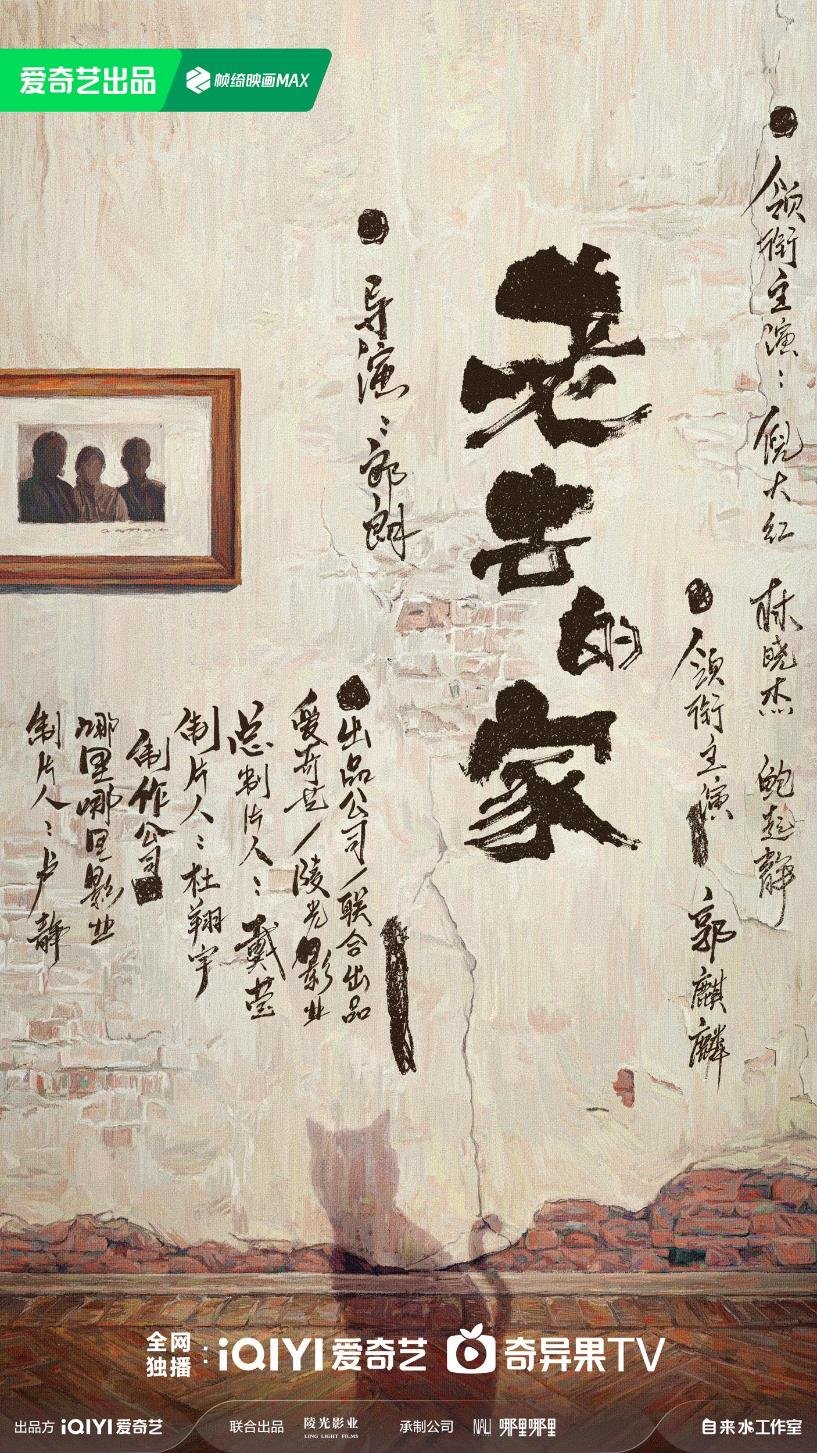 爱奇艺出品 帧绮映画MAX
领衔主演：倪大红 林晓杰 鲍起静
领衔主演：郭麒麟
老去的家
导演：郭朗
出品公司/联合出品
爱奇艺/陵光影业
总制片人：戴莹
制片人：杜翔宇
制作公司
哪里哪里影业
制片人：卢静
全网独播：iQIYI爱奇艺 奇异果TV
出品方 iQIYI爱奇艺 联合出品 陵光影业 LING LIGHT FILMS 承制公司 NALI 哪里哪里 自来水工作室